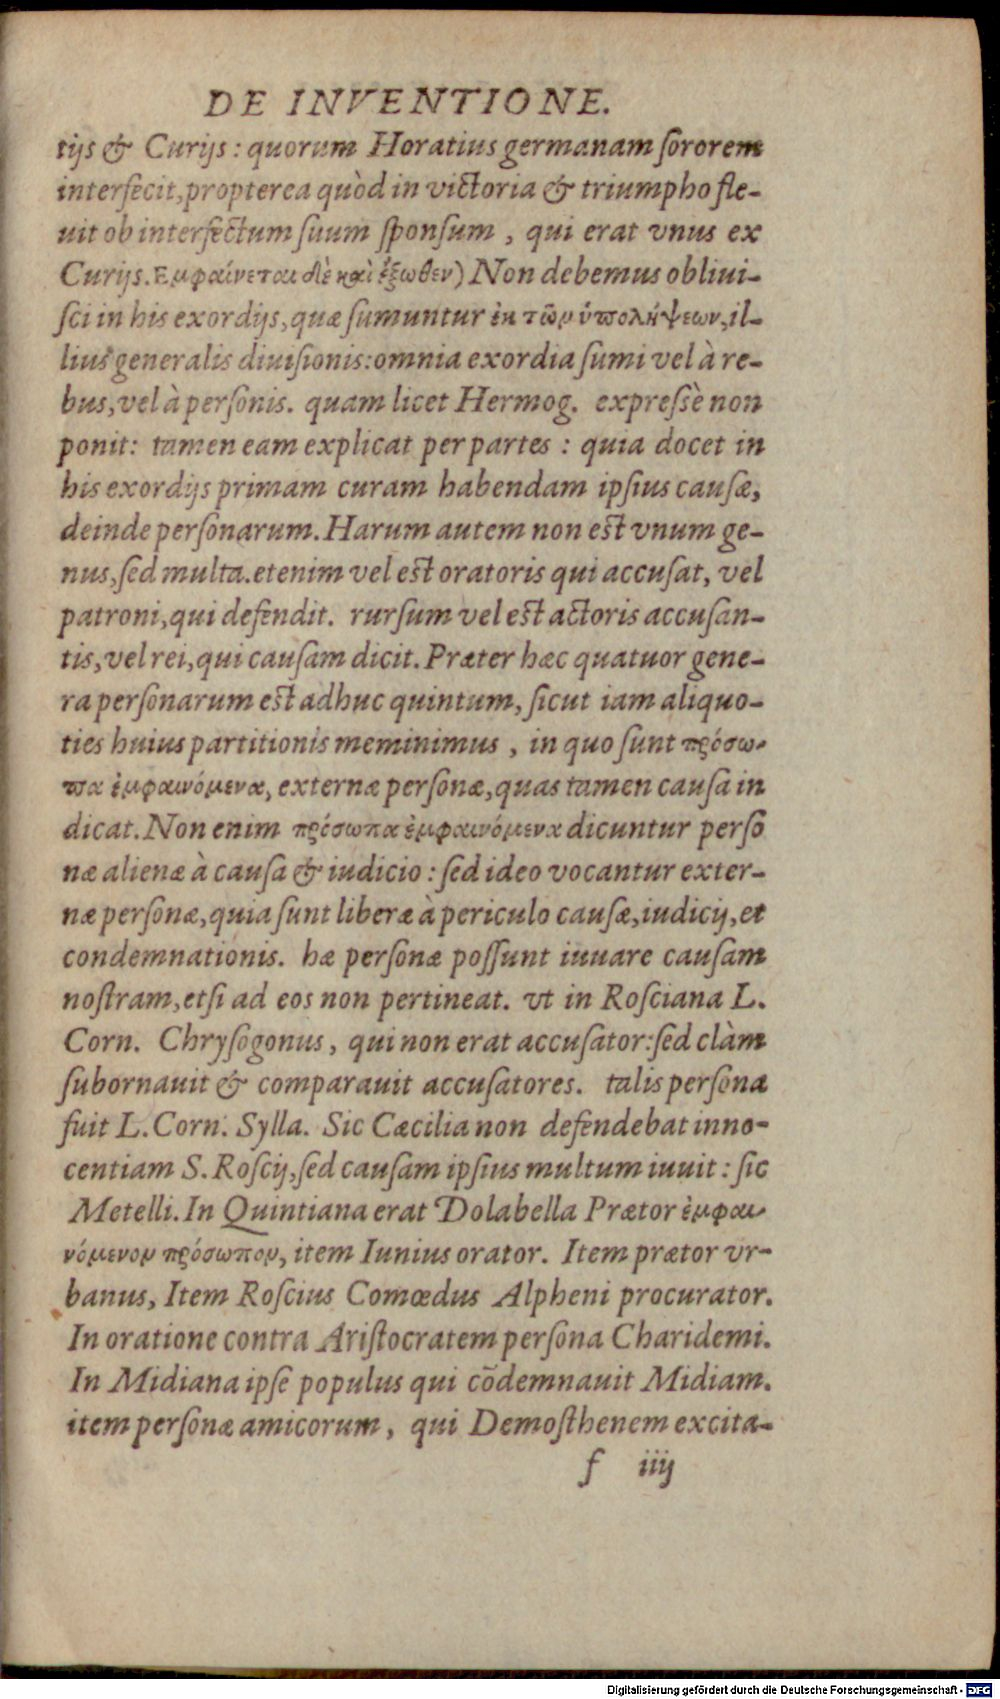 DE INVENTIONE.
tijs & Curijs: quorum Horatius germanam ſororem
interfecit, propterea quòd in victoria & triumpho fle-
uit ob interfectum ſuum ſponſum, qui erat vnus ex
Curijs. Εμφαίνεται δὲ καὶ ἔξωθεν) Non debemus obliui-
ſci in his exordijs, quæ ſumuntur ἐκ τῶν ὑπολήψεων, il-
lius generalis diuiſionis: omnia exordia ſumi vel à re-
bus, vel à perſonis. quam licet Hermog. expreſsè non
ponit: tamen eam explicat per partes: quia docet in
his exordijs primam curam habendam ipſius cauſæ,
deinde perſonarum. Harum autem non est vnum ge-
nus, ſed multa. etenim vel est oratoris qui accuſat, vel
patroni, qui defendit. rurſum vel est actoris accuſan-
tis, vel rei, qui cauſam dicit. Præter hæc quatuor gene-
ra perſonarum est adhuc quintum, ſicut iam aliquo-
ties huius partitionis meminimus, in quo ſunt πρόσω-
πα ἐμφαινόμενα, externæ perſonæ, quas tamen cauſa in
dicat. Non enim πρόσωπα ἐμφαινόμενα dicuntur perſo
næ alienæ à cauſa & iudicio: ſed ideo vocantur exter-
næ perſonæ, quia ſunt liberæ à periculo cauſæ, iudicij, et
condemnationis. hæ perſonæ poſſunt iuuare cauſam
noſtram, etſi ad eos non pertineat. vt in Roſciana L.
Corn. Chryſogonus, qui non erat accuſator: ſed clàm
ſubornauit & comparauit accuſatores. talis perſona
fuit L. Corn. Sylla. Sic Cæcilia non defendebat inno-
centiam S. Roſcij, ſed cauſam ipſius multum iuuit: ſic
Metelli. In Quintiana erat Dolabella Prætor ἐμφαι-
νόμενον πρόσωπον, item Iunius orator. Item prætor vr-
banus, Item Roſcius Comœdus Alpheni procurator.
In oratione contra Ariſtocratem perſona Charidemi.
In Midiana ipſe populus qui cōdemnauit Midiam.
item perſonæ amicorum, qui Demoſthenem excita-
f iiij
Digitalisierung gefördert durch die Deutsche Forschungsgemeinschaft - DFG